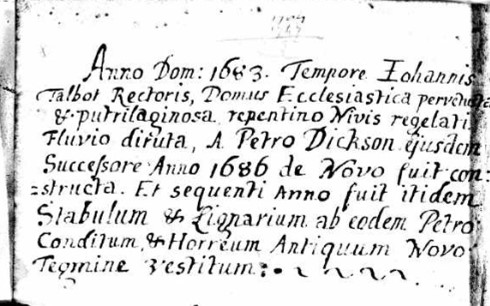 Anno Dom: 1683. Tempore Iohannis
Talbot Rectoris, Domus Ecclesiastica pervetusta
& putrilaginosa repentino Nivis regelati
Fluvio diruta, A Petro Dickson ejusdem
Successore Anno 1686 de Novo fuit con=
=structa. Et sequenti Anno fuit itidem
Stabulum & Lignarium ab eodem Petro
Conditum, & Horreum Antiquum Novo
Tegmine Vestitum: